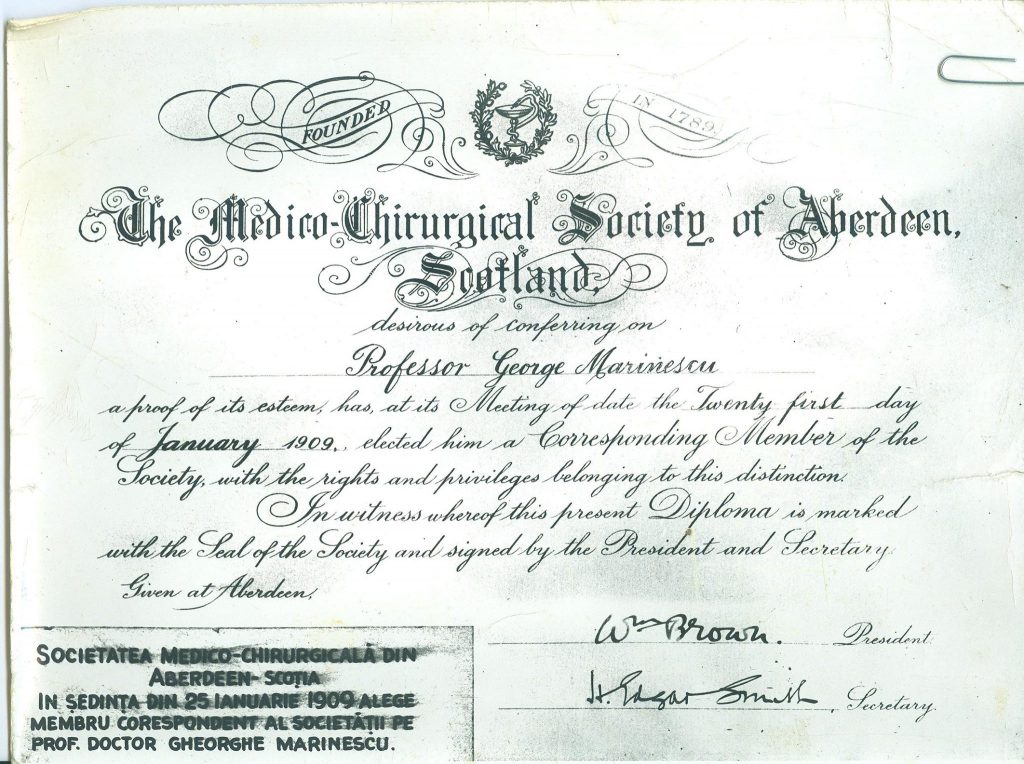 FOUNDED IN 1789.
The Medico-Chirurgical Society of Aberdeen,
Scotland,
desirous of conferring on
Professor George Marinescu
a proof of its esteem, has, at its Meeting of date the Twenty first day
of January 1909, elected him a Corresponding Member of the
Society, with the rights and privileges belonging to this distinction.
In witness whereof this present Diploma is marked
with the Seal of the Society and signed by the President and Secretary.
Given at Aberdeen,
Wm Brown. President.
H. Edgar Smith, Secretary.
SOCIETATEA MEDICO-CHIRURGICALĂ DIN
ABERDEEN-SCOȚIA
IN ȘEDINȚA DIN 25 IANUARIE 1909 ALEGE
MEMBRU CORESPONDENT AL SOCIETĂȚII PE
PROF. DOCTOR GHEORGHE MARINESCU.